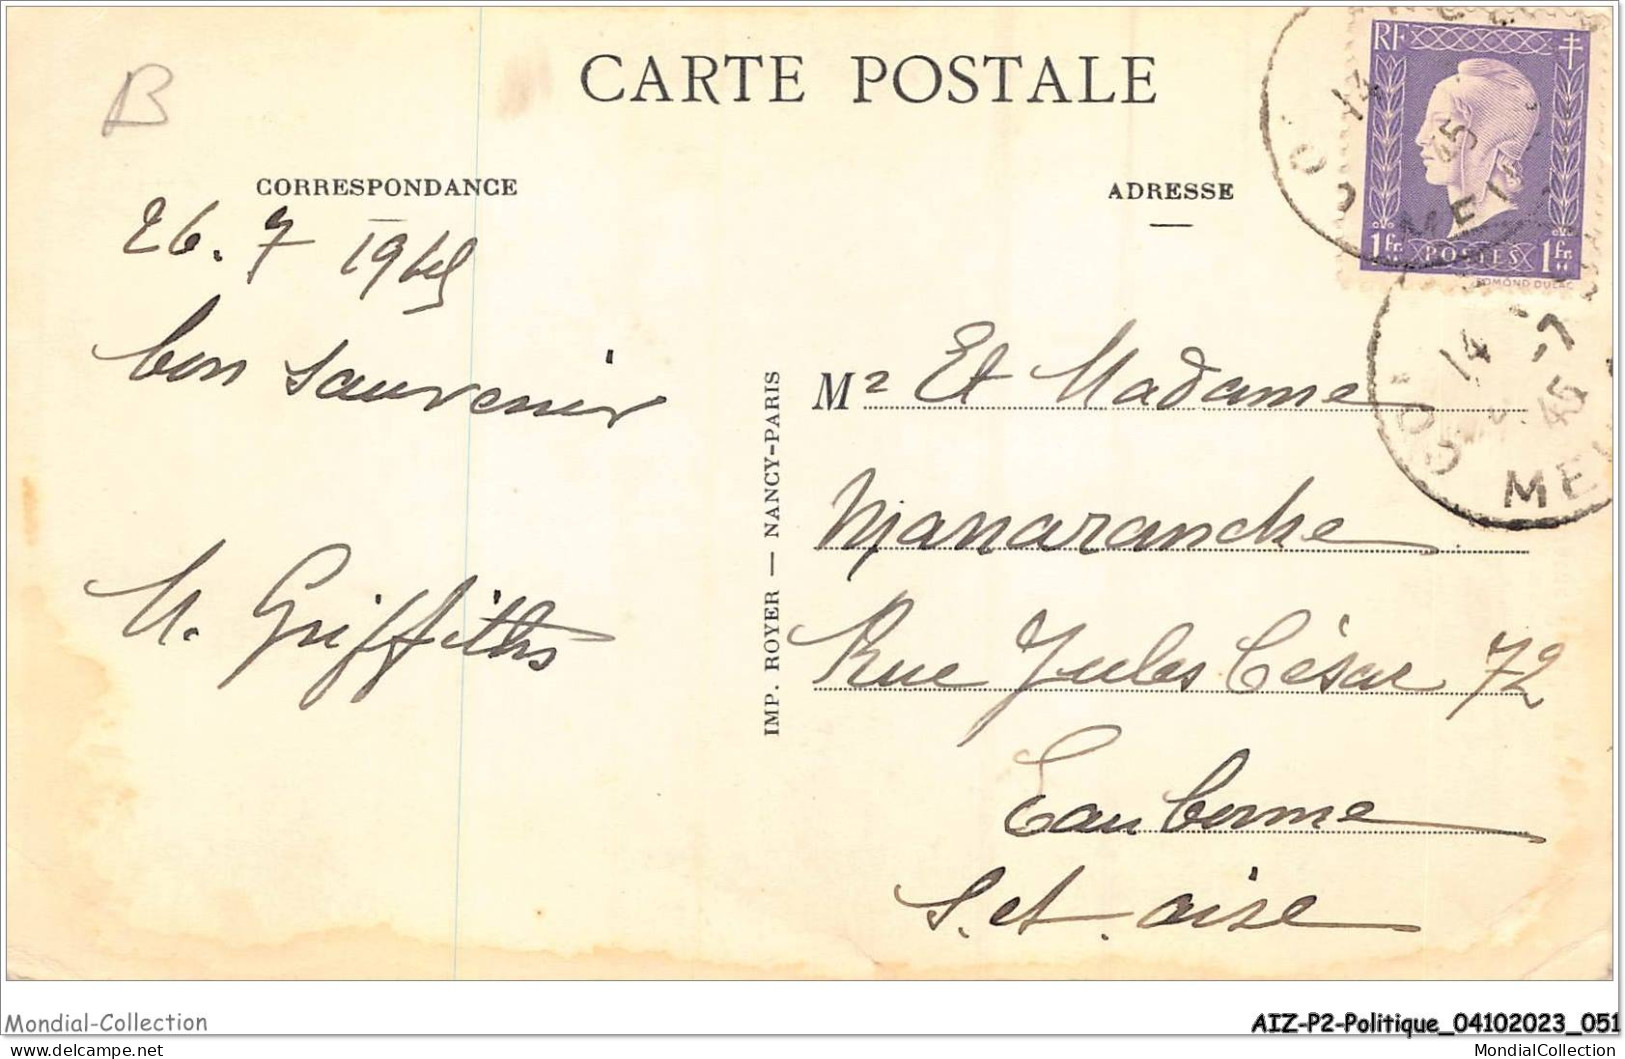 CARTE POSTALE
B
CORRESPONDANCE
ADRESSE
26. 7 1945
bon souvenir
Griffiths
IMP. ROYER — NANCY-PARIS
Mr Et Madame
Manaranche
Rue Jules César 72
Eaubonne
S. et. oise
RF
1 fr. POSTES 1 fr.
EDMOND DULAC
14
45
14 -7
45
Mondial-Collection
AIZ-P2-Politique_04102023_051
MondialCollection
delcampe.net